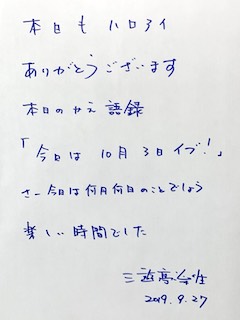 本日も ハロアイ
ありがとうございます
本日のかえ語録
「今日は 10月 3日イブ!」
さー今日は何月何日のことでしょう
楽しい時間でした
三遊亭
2019.9.27